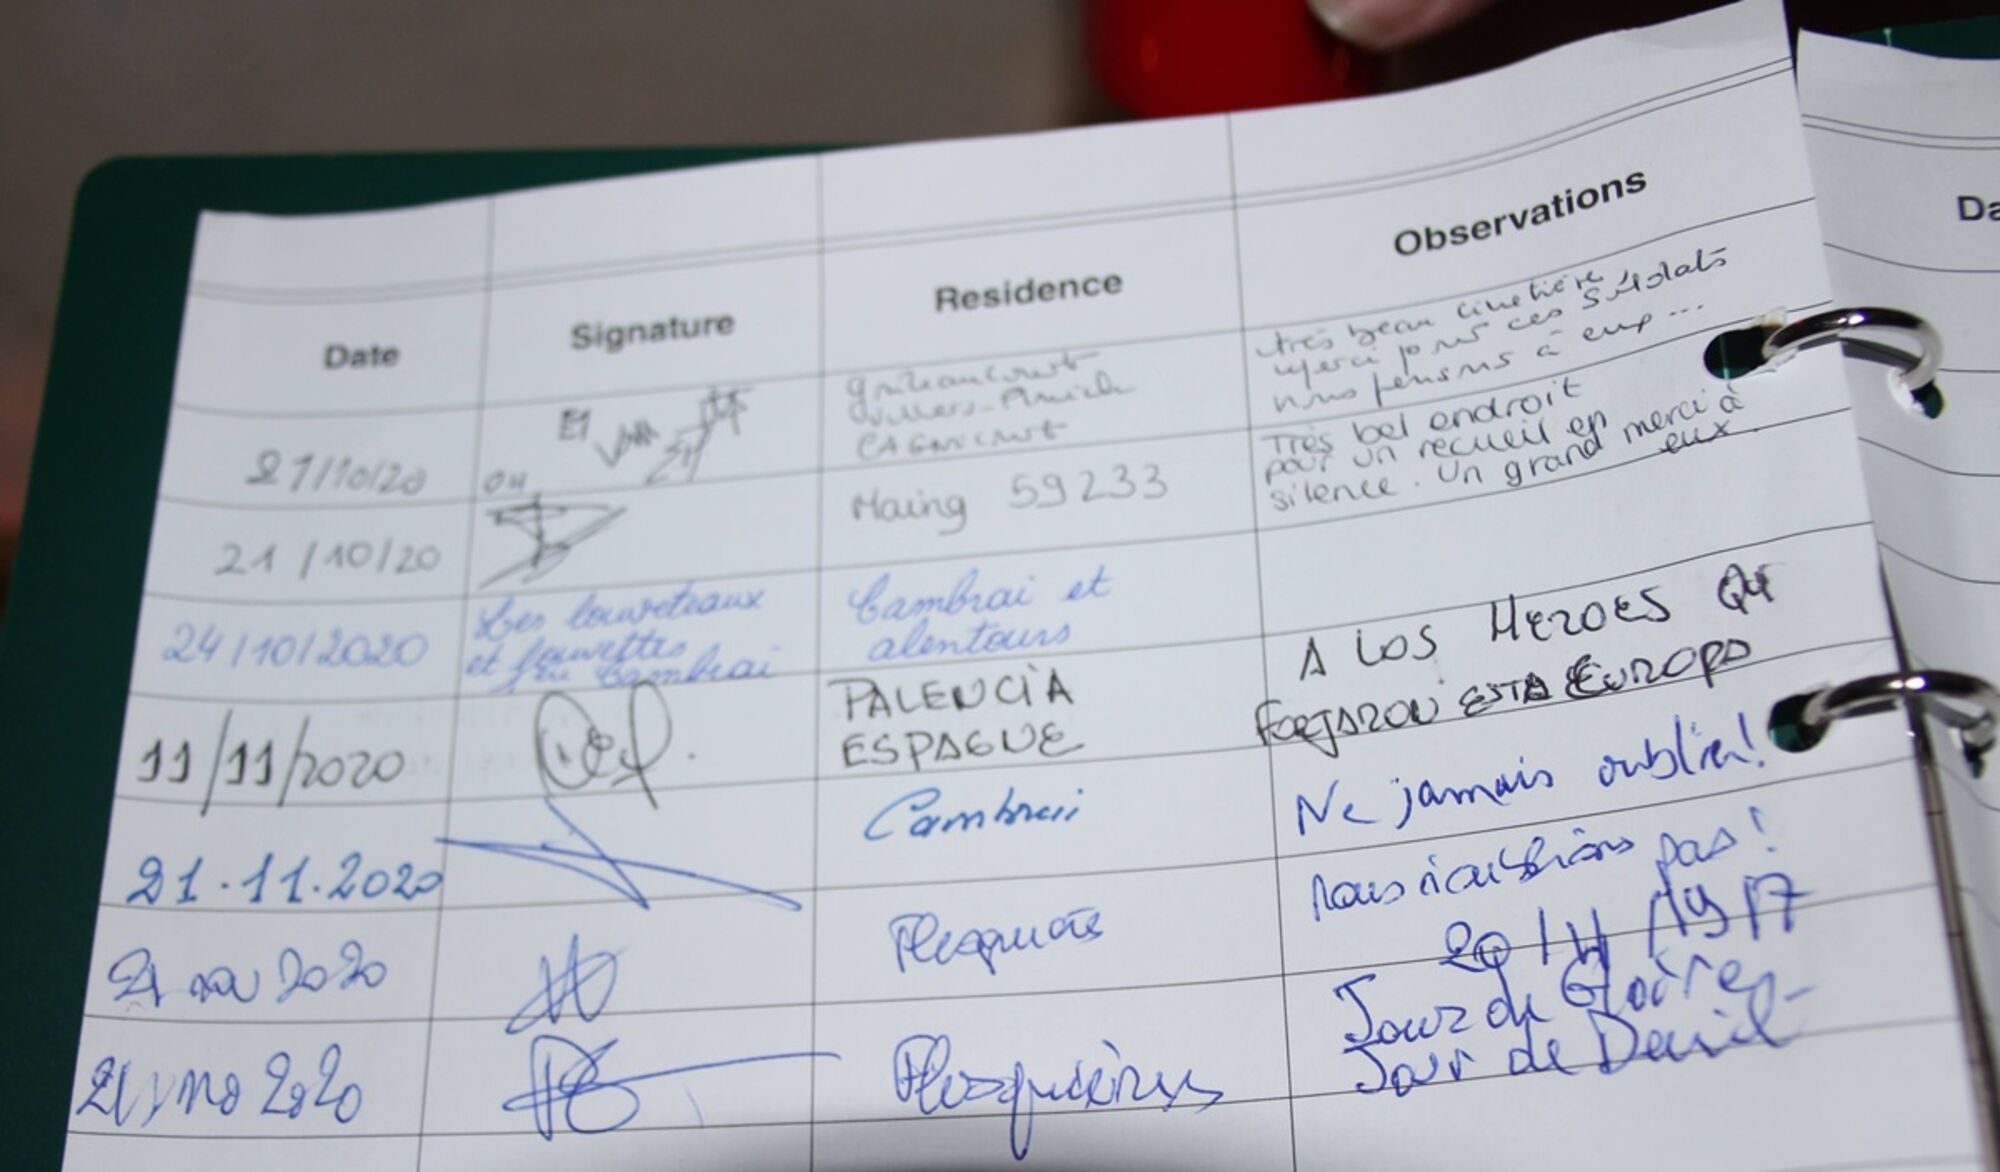 Date Signature Residence Observations
21/10/20
Villers-
très beau cimetière
merci pour ces soldats
nous pensons à eux ...
21/10/20
Maing 59233
Très bel endroit
pour un recueil en
silence. Un grand merci à
eux.
24/10/2020
Les louveteaux
et louvettes
Cambrai
Cambrai et
alentours
11/11/2020
PALENCIA
ESPAGUE
A LOS HEROES QUE
FORJARON ESTA EUROPA
21.11.2020
Cambrai
Ne jamais oublier!
21 nov 2020
Flesquières
Nous n'oublions pas!
20/11/1917
21 nov 2020
Flesquières
Jour de Gloire
Jour de Deuil
Da